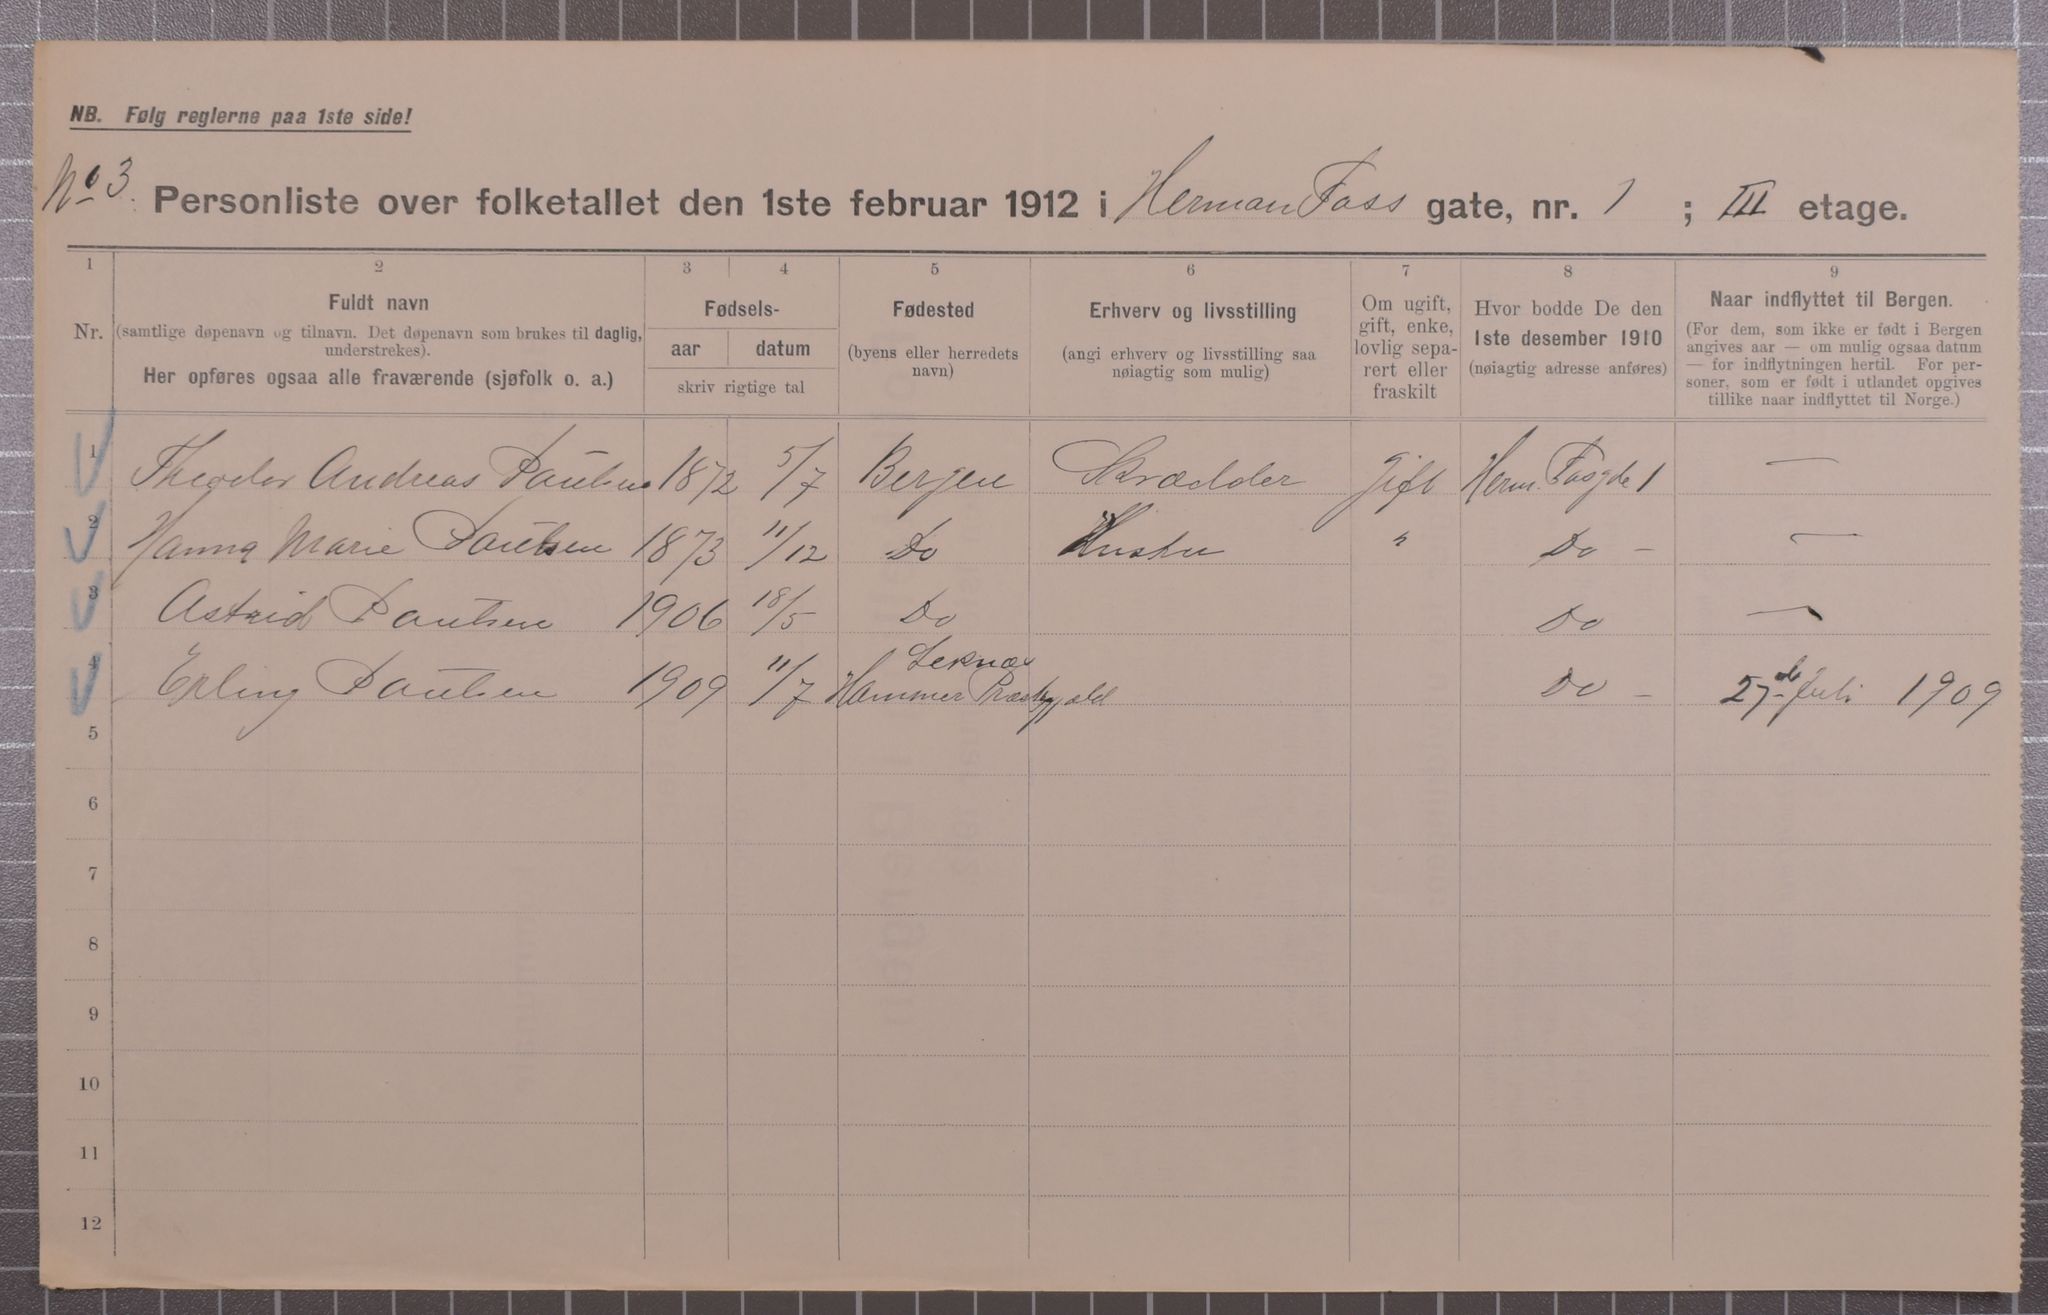 NB. Følg reglerne paa 1ste side!
No 3. Personliste over folketallet den 1ste februar 1912 i Herman Foss gate, nr. 1 ; III etage.
1 2 3 4 5 6 7 8 9
Nr.
Fuldt navn
(samtlige døpenavn og tilnavn. Det døpenavn som brukes til daglig,
understrekes).
Her opføres ogsaa alle fraværende (sjøfolk o. a.)
Fødsels-
aar datum
skriv rigtige tal
Fødested
(byens eller herredets
navn)
Erhverv og livsstilling
(angi erhverv og livsstilling saa
nøiagtig som mulig)
Om ugift,
gift, enke,
lovlig sepa-
rert eller
fraskilt
Hvor bodde De den
1ste desember 1910
(nøiagtig adresse anføres)
Naar indflyttet til Bergen.
(For dem, som ikke er født i Bergen
angives aar — om mulig ogsaa datum
— for indflytningen hertil. For per-
soner, som er født i utlandet opgives
tillike naar indflyttet til Norge.)
1 Theodor Andreas Paulsen 1872 5/7 Bergen Skrædder Gift Herm. Fosgde 1 —
2 Hanna Marie Paulsen 1873 11/12 Do Hustru " Do — —
3 Astrid Paulsen 1906 18/5 Do Do —
4 Erling Paulsen 1909 11/7 Seknæs Hammer Præstegjæld Do — 27de Juli 1909
5
6
7
8
9
10
11
12